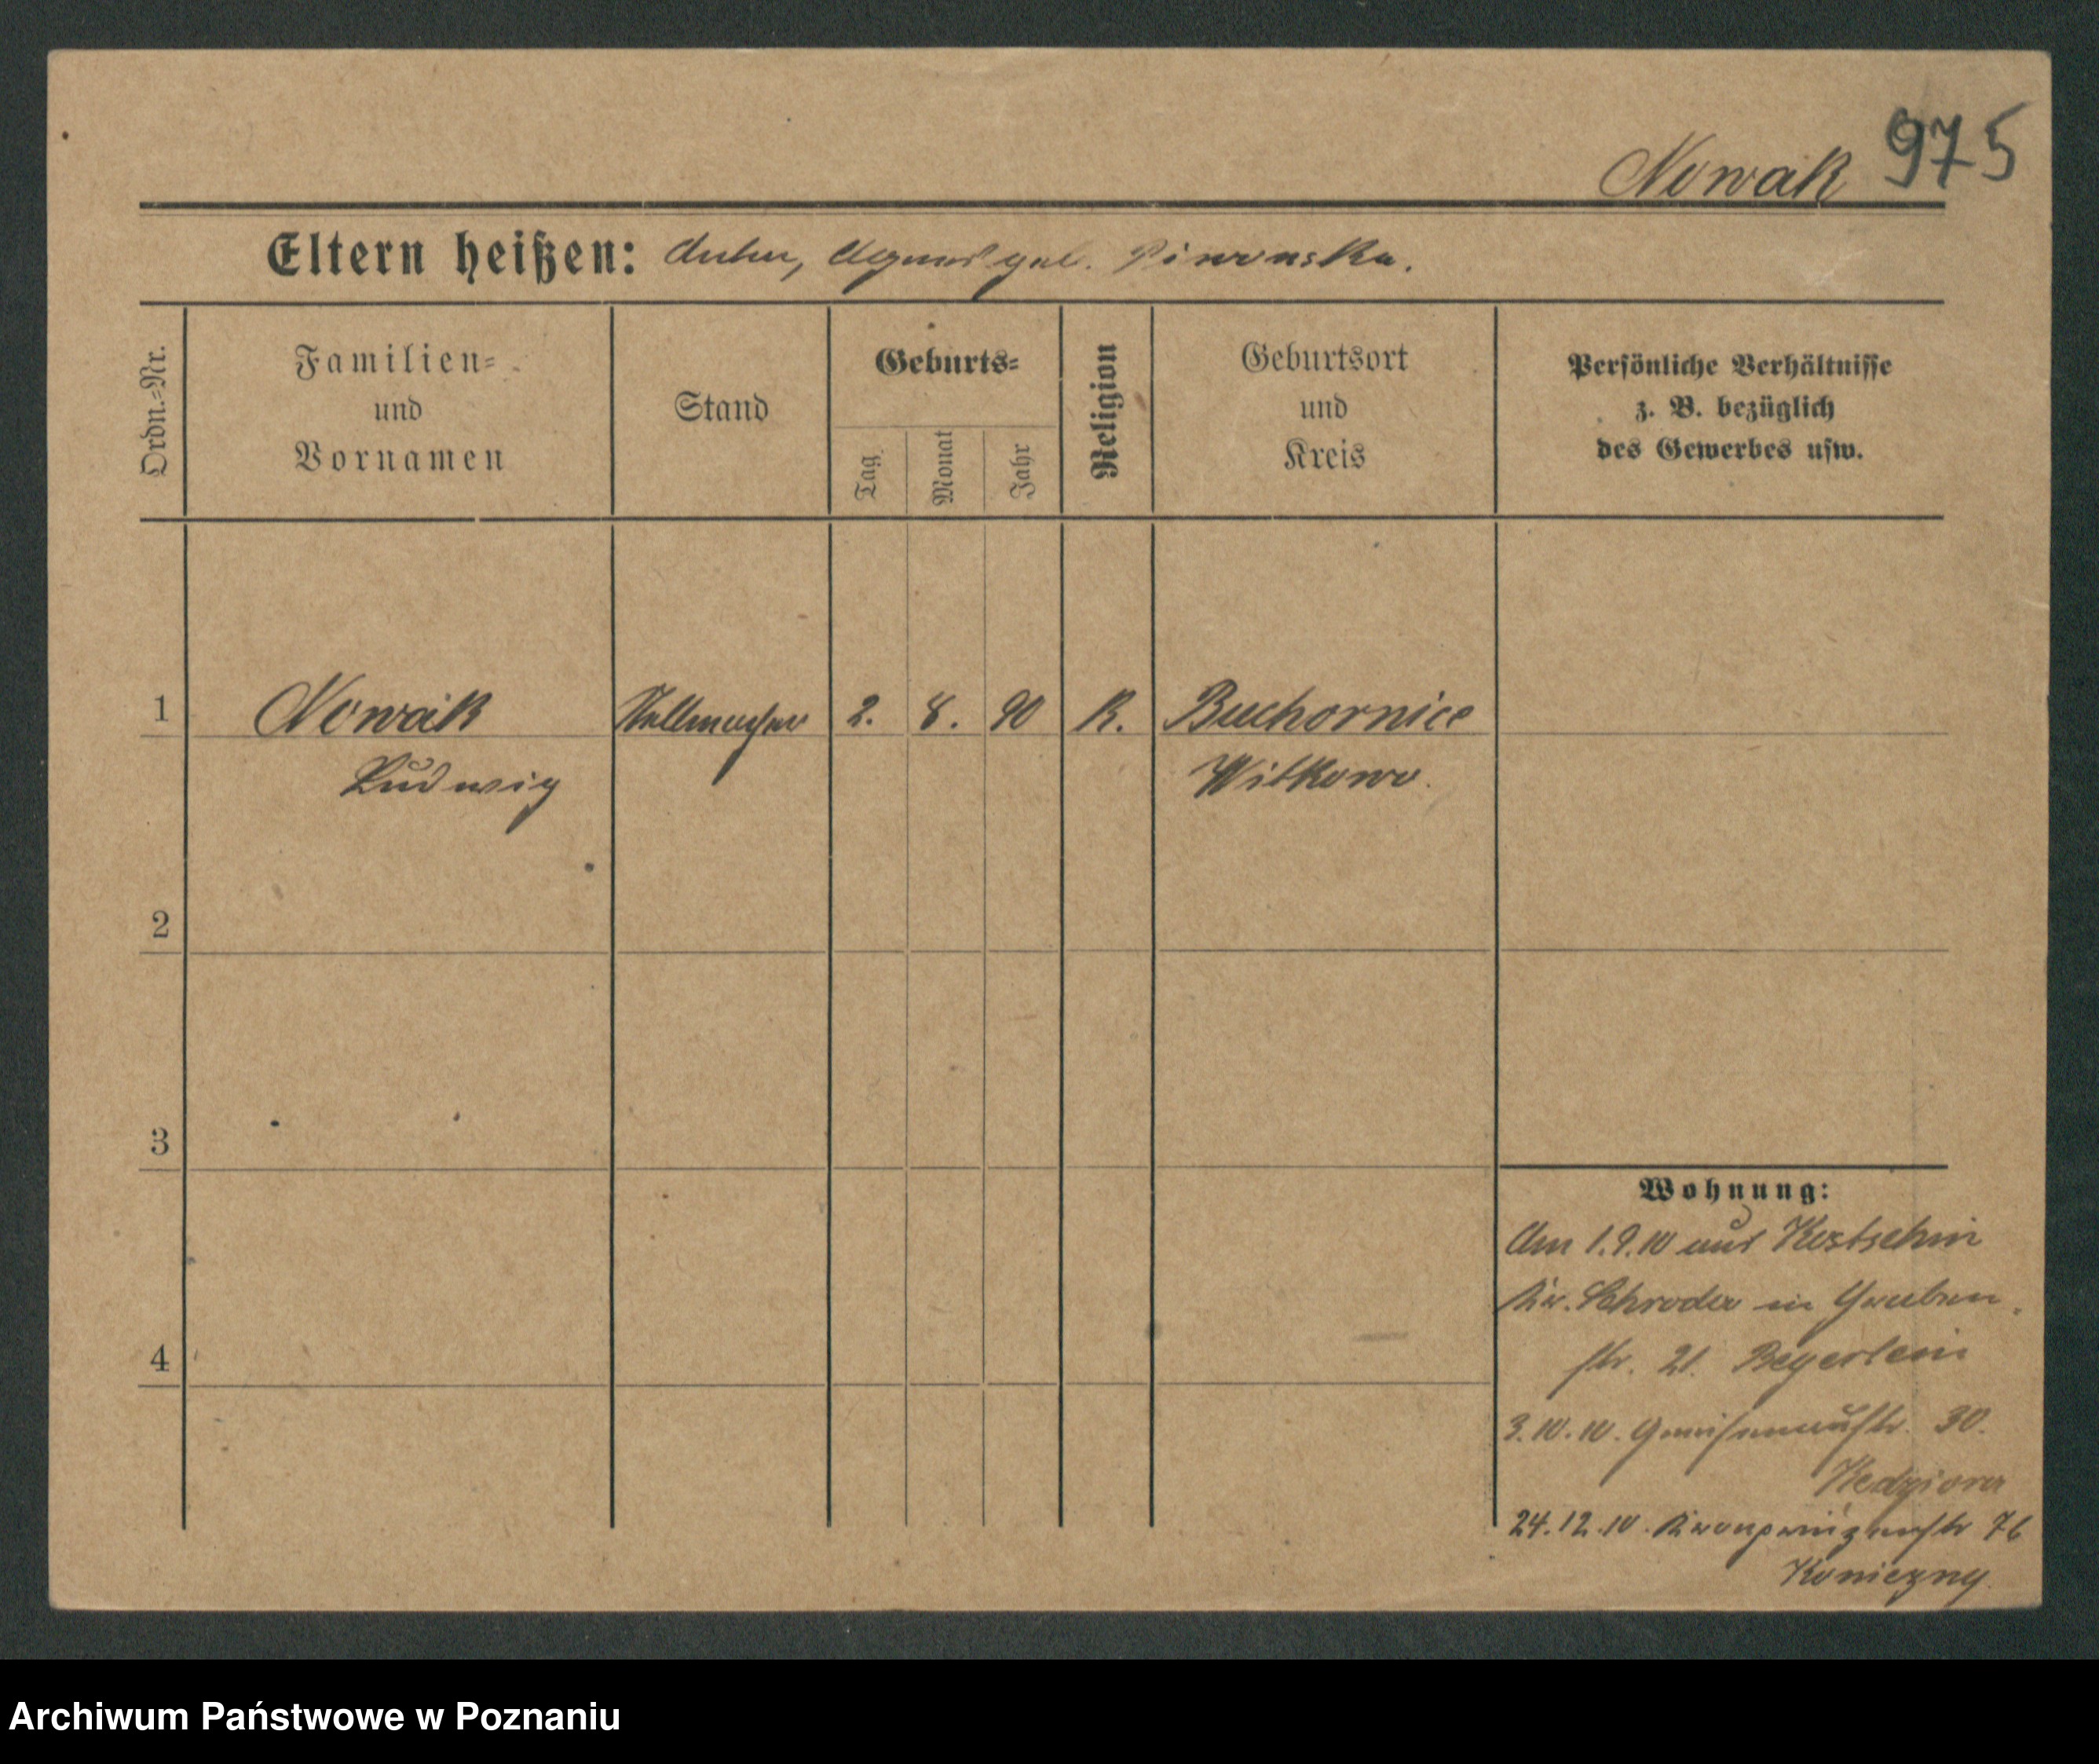 Nowak 975
Eltern heißen: Anton, Agnes geb. Piwonska.
Ordn.=Nr.
Familien=
und
Vornamen
Stand
Geburts=
Tag
Monat
Jahr
Religion
Geburtsort
und
Kreis
Persönliche Verhältnisse
z. B. bezüglich
des Gewerbes usw.
1 Nowak Stellmacher 2. 8. 90 K. Buchornice
Ludwig Witkowo.
2
3
4
Wohnung:
Am 1.9.10 aus Kostschin
Kr. Schroda in Graben
str. 21. Beyerlein
3.10.10. Gneisenaustr. 30.
Kedziora
24.12.10. Kronprinzenstr 76
Konieczny.
Archiwum Państwowe w Poznaniu